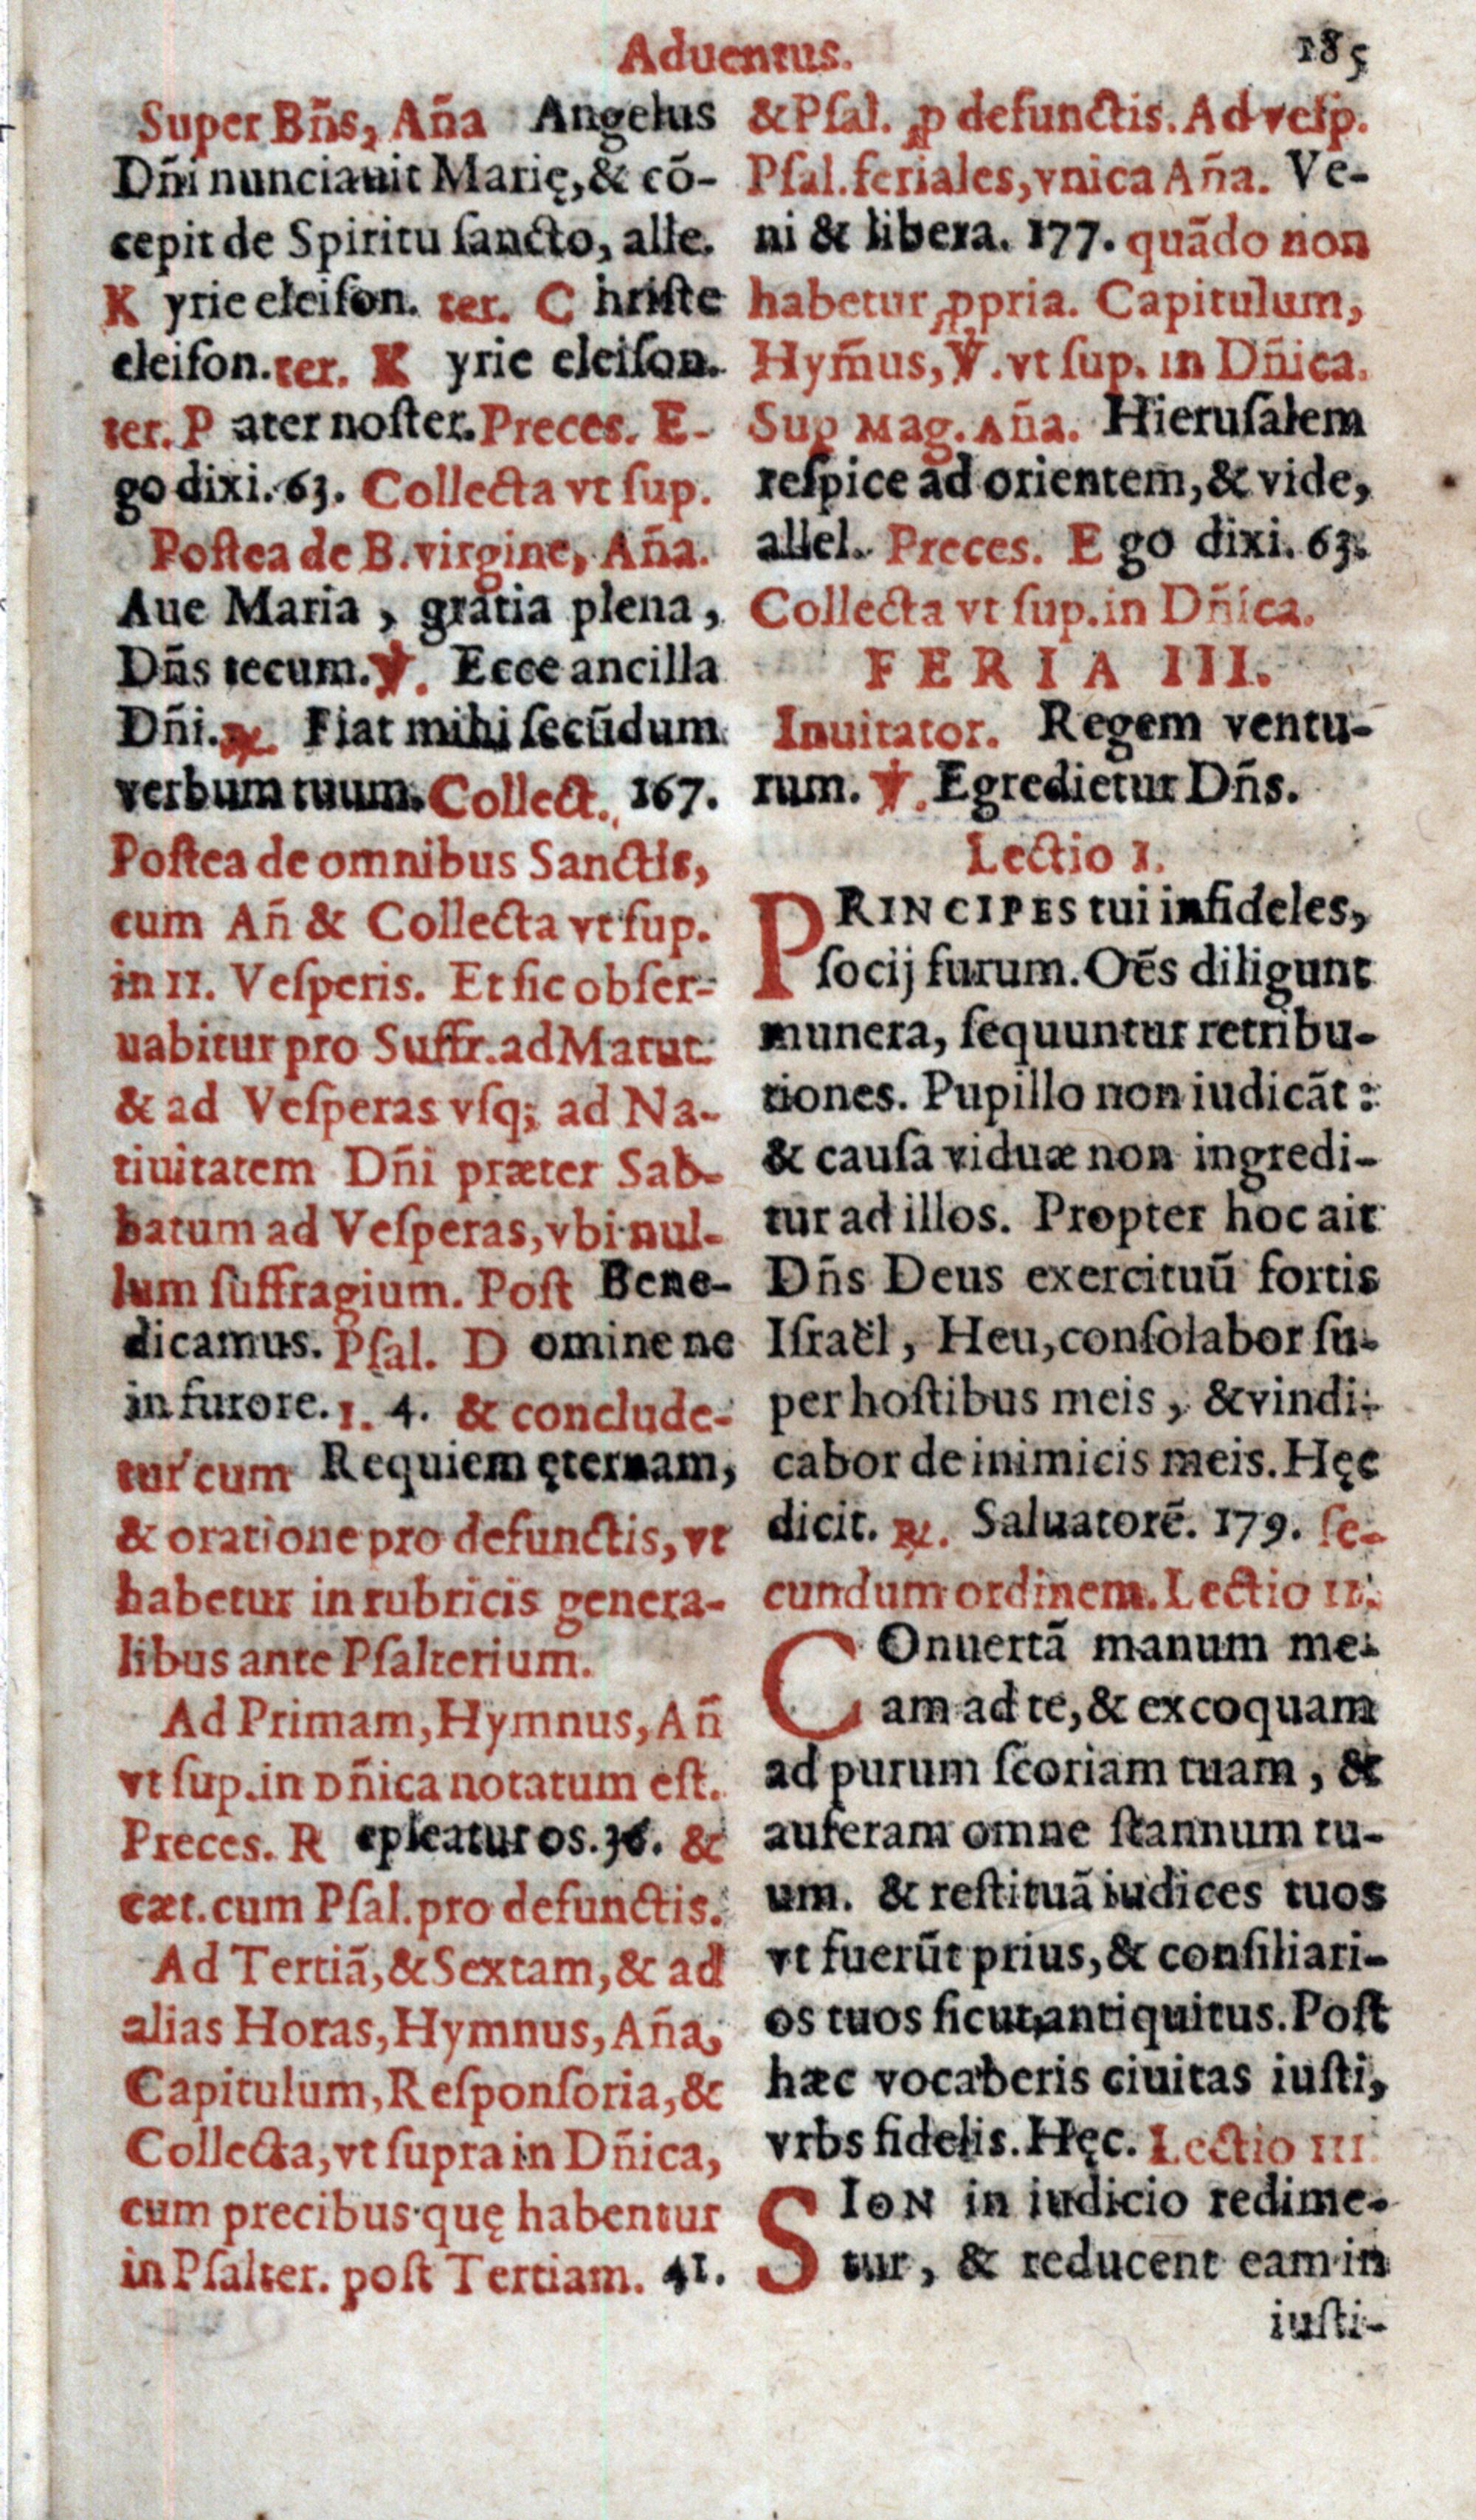 Aduentus.
185
Super Bñs, Aña Angelus
Dñi nunciauit Marię, & cō-
cepit de Spiritu sancto, alle.
K yrie eleison. ter. C hriste
eleison. ter. K yrie eleison.
ter. P ater noster. Preces. E-
go dixi. 63. Collecta vt sup.
Postea de B. virgine, Aña.
Aue Maria, gratia plena,
Dñs tecum. ℣. Ecce ancilla
Dñi. ℞. Fiat mihi secũdum
verbum tuum. Collect. 167.
Postea de omnibus Sanctis,
cum Añ & Collecta vt sup.
in II. Vesperis. Et sic obser-
uabitur pro Suffr. ad Matut.
& ad Vesperas vsq; ad Na-
tiuitatem Dñi præter Sab-
batum ad Vesperas, vbi nul-
lum suffragium. Post Bene-
dicamus. Psal. D omine ne
in furore. 1. 4. & conclude-
tur cum Requiem ęternam,
& oratione pro defunctis, vt
habetur in rubricis genera-
libus ante Psalterium.
Ad Primam, Hymnus, Añ
vt sup. in Dñica notatum est.
Preces. R epleatur os. 36. &
cæt. cum Psal. pro defunctis.
Ad Tertiā, & Sextam, & ad
alias Horas, Hymnus, Aña,
Capitulum, Responsoria, &
Collecta, vt supra in Dñica,
cum precibus quę habentur
in Psalter. post Tertiam. 41.
& Psal. ꝓ defunctis. Ad vesp.
Psal. feriales, vnica Aña. Ve-
ni & libera. 177. quādo non
habetur ꝓpria. Capitulum,
Hym̃us, ℣. vt sup. in Dñica.
Sup Mag. Aña. Hierusalem
respice ad orientem, & vide,
allel. Preces. E go dixi. 63.
Collecta vt sup. in Dñica.
FERIA III.
Inuitator. Regem ventu-
rum. ℣. Egredietur Dñs.
Lectio I.
PRINCIPES tui infideles,
socij furum. Oēs diligunt
munera, sequuntur retribu-
tiones. Pupillo non iudicāt:
& causa viduæ non ingredi-
tur ad illos. Propter hoc ait
Dñs Deus exercituū fortis
Israël, Heu, consolabor su-
per hostibus meis, & vindi-
cabor de inimicis meis. Hęc
dicit. ℞. Saluatorē. 179. se-
cundum ordinem. Lectio II.
COnuertā manum me-
am ad te, & excoquam
ad purum scoriam tuam, &
auferam omne stannum tu-
um. & restituā iudices tuos
vt fuerūt prius, & consiliari-
os tuos sicut antiquitus. Post
hæc vocaberis ciuitas iusti,
vrbs fidelis. Hęc. Lectio III
SION in iudicio redime-
tur, & reducent eam in
iusti-